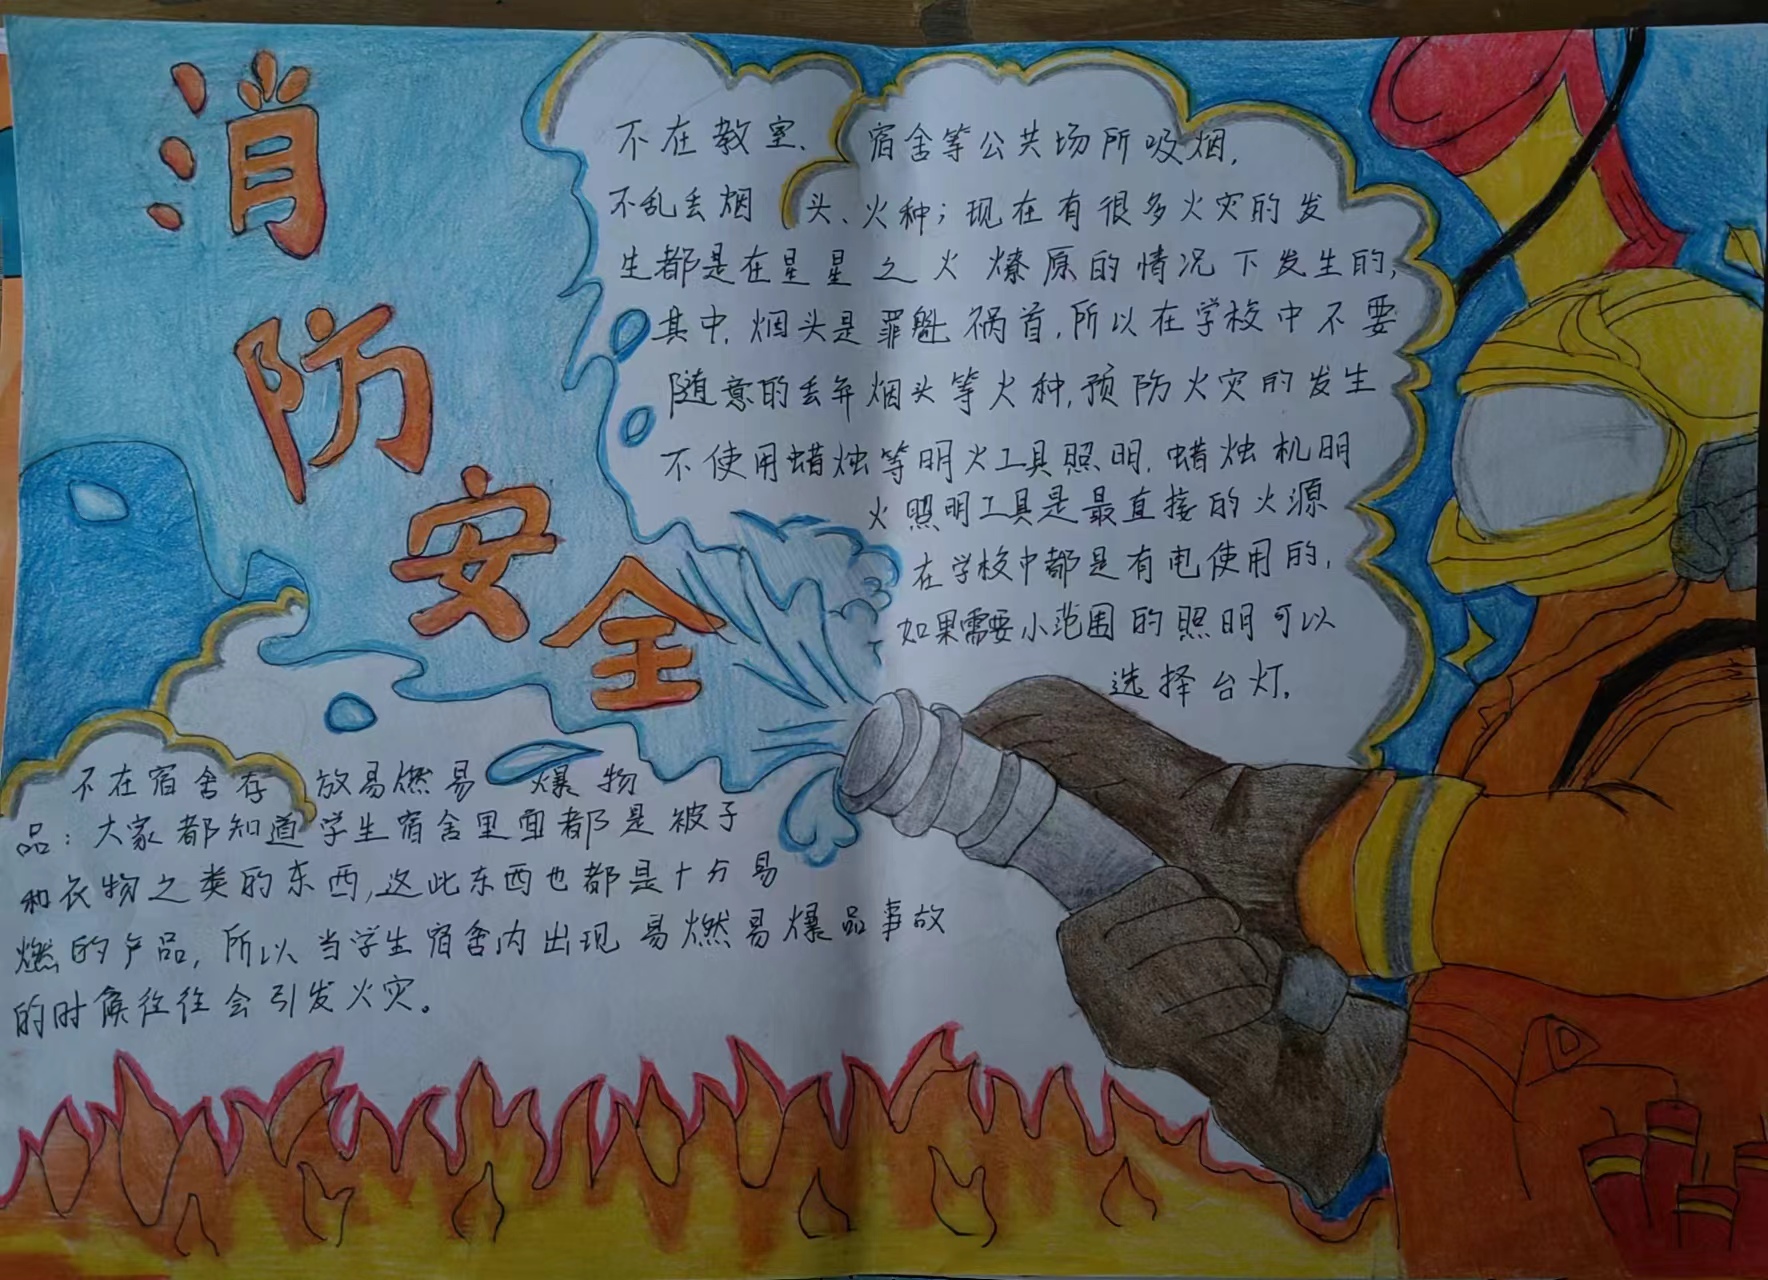 消防安全
不在教室、宿舍等公共场所吸烟,
不乱丢烟头、火种;现在有很多火灾的发
生都是在星星之火燎原的情况下发生的,
其中,烟头是罪魁祸首,所以在学校中不要
随意的丢弃烟头等火种,预防火灾的发生
不使用蜡烛等明火工具照明,蜡烛机明
火照明工具是最直接的火源
在学校中都是有电使用的,
如果需要小范围的照明可以
选择台灯.
不在宿舍存放易燃易爆物
品:大家都知道学生宿舍里面都是被子
和衣物之类的东西,这此东西也都是十分易
燃的产品,所以当学生宿舍内出现易燃易爆品事故
的时候往往会引发火灾。